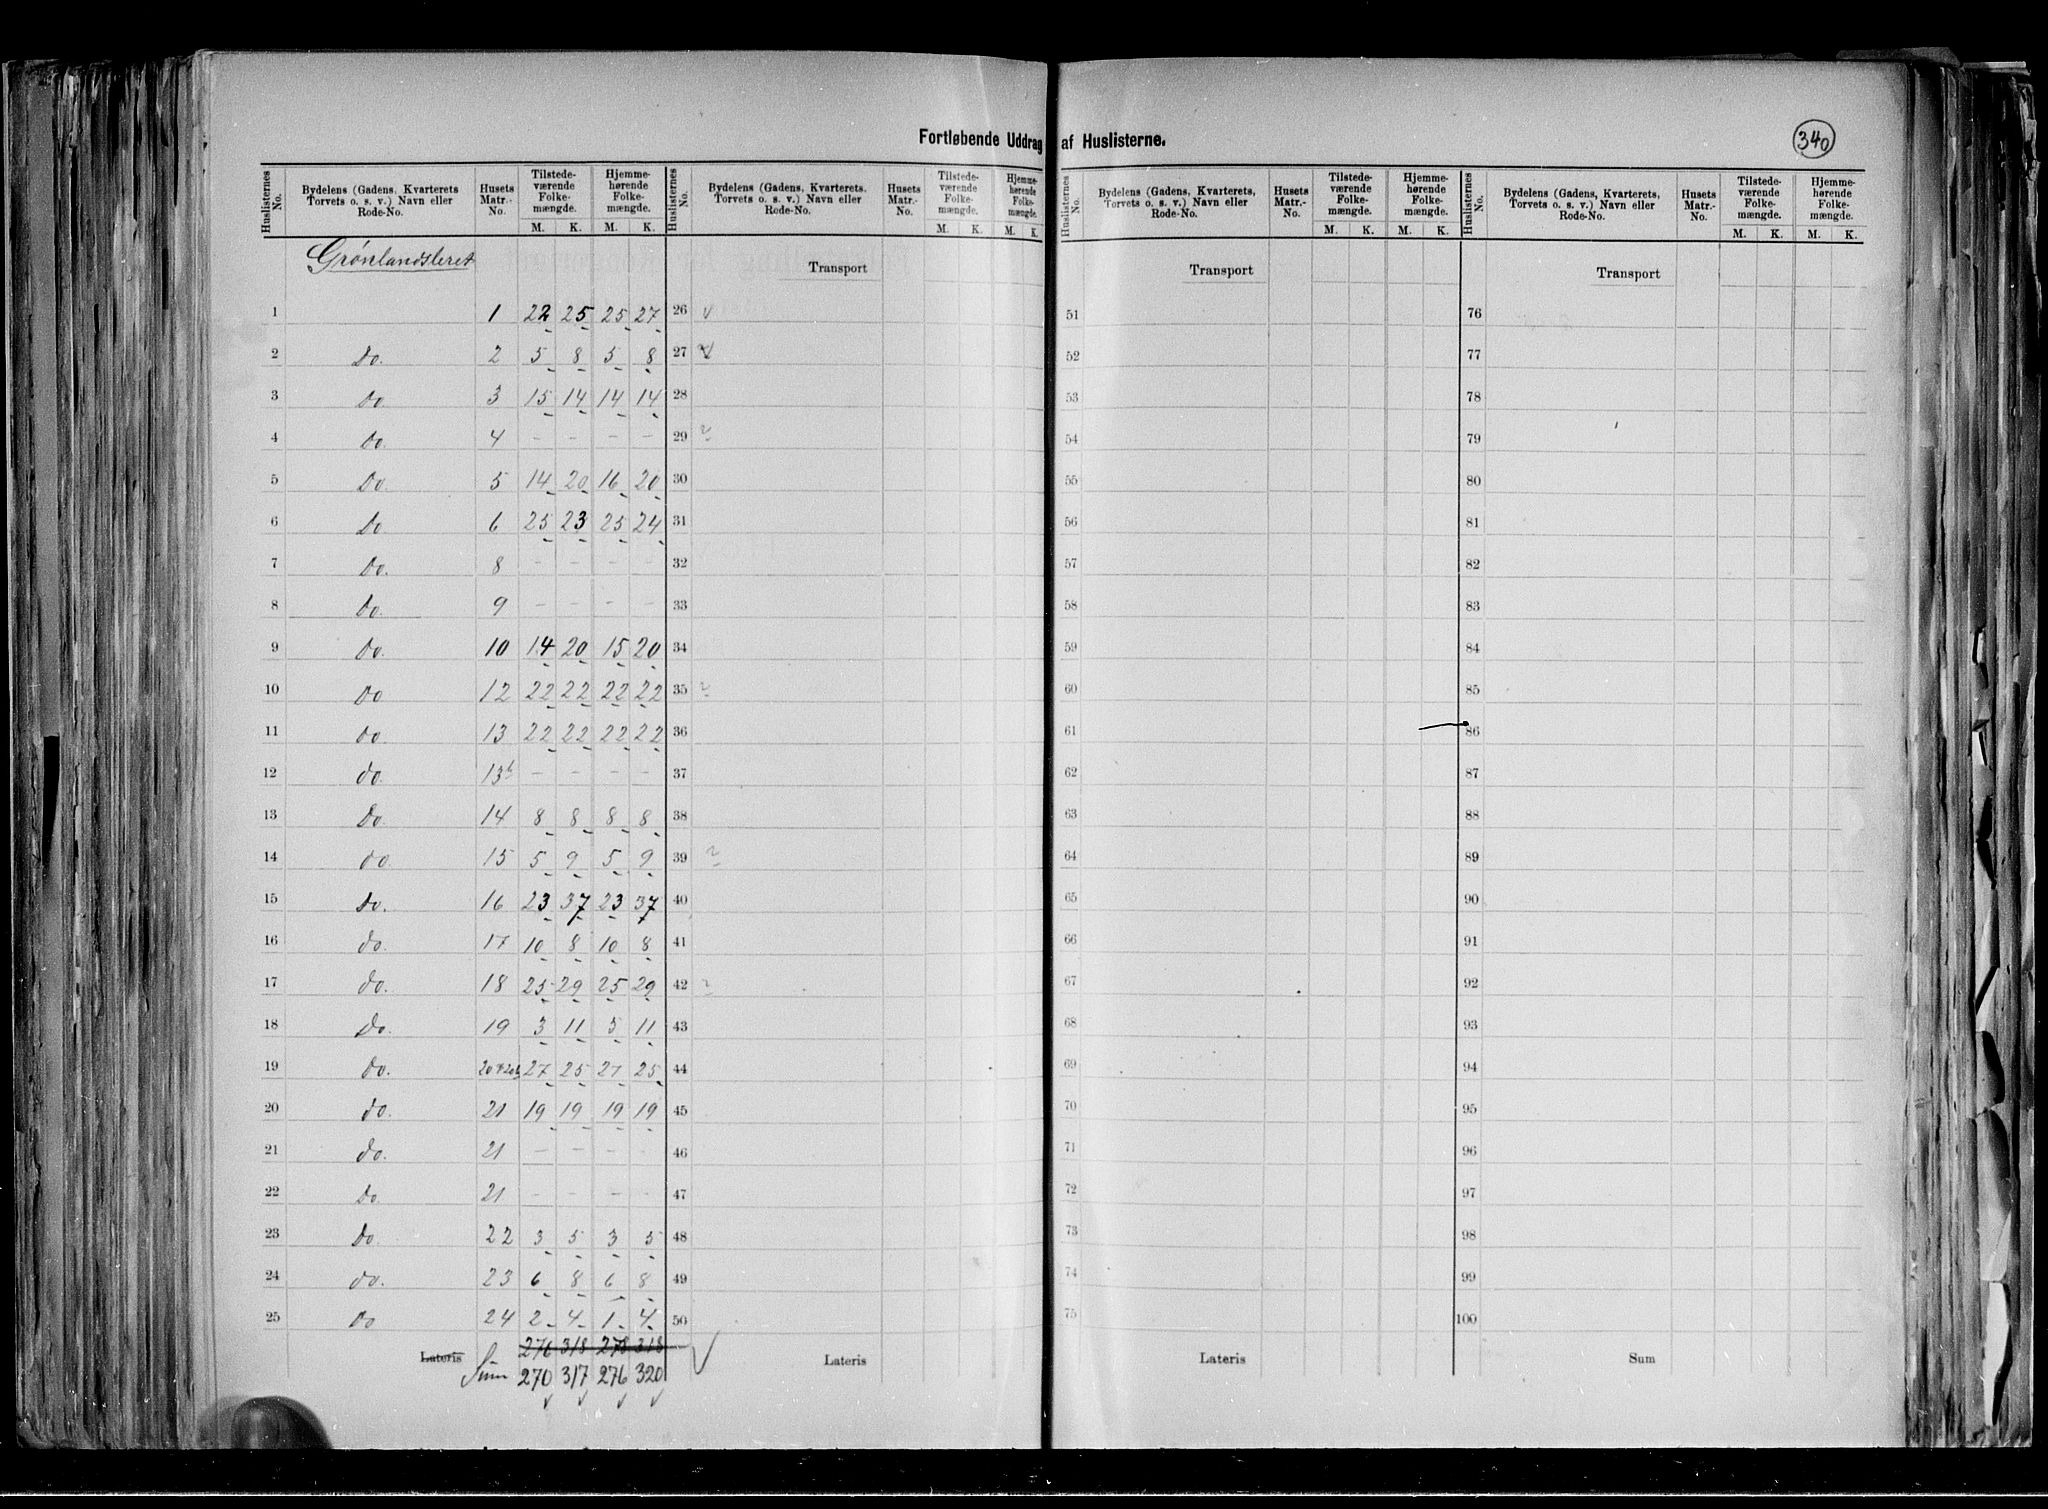 Fortløbende Uddrag af Huslisterne.
340
Huslisternes No. | Bydelens (Gadens, Kvarterets Torvets o. s. v.) Navn eller Rode-No. | Husets Matr.-No. | Tilstedeværende Folkemængde. M. K. | Hjemmehørende Folkemængde. M. K.
Huslisternes No. | Bydelens (Gadens, Kvarterets, Torvets o. s. v.) Navn eller Rode-No. | Husets Matr.-No. | Tilstedeværende Folkemængde. M. K. | Hjemmehørende Folkemængde. M. K.
Huslisternes No. | Bydelens (Gadens, Kvarterets, Torvets o. s. v.) Navn eller Rode-No. | Husets Matr.-No. | Tilstedeværende Folkemængde. M. K. | Hjemmehørende Folkemængde. M. K.
Huslisternes No. | Bydelens (Gadens, Kvarterets, Torvets o. s. v.) Navn eller Rode-No. | Husets Matr.-No. | Tilstedeværende Folkemængde. M. K. | Hjemmehørende Folkemængde. M. K.
Grønlandsleret Transport Transport Transport
1 1 22 25 25 27 26 51 76
2 Do. 2 5 8 5 8 27 52 77
3 Do. 3 15 14 14 14 28 53 78
4 Do. 4 – – – – 29 54 79
5 Do. 5 14 20 16 20 30 55 80
6 Do 6 25 23 25 24 31 56 81
7 Do. 8 – – – – 32 57 82
8 Do. 9 – – – – 33 58 83
9 Do. 10 14 20 15 20 34 59 84
10 Do 12 22 22 22 22 35 60 85
11 Do. 13 22 22 22 22 36 61 86
12 do. 13b – – – – 37 62 87
13 Do. 14 8 8 8 8 38 63 88
14 do. 15 5 9 5 9 39 64 89
15 Do. 16 23 37 23 37 40 65 90
16 do. 17 10 8 10 8 41 66 91
17 do. 18 25 29 25 29 42 67 92
18 Do. 19 3 11 5 11 43 68 93
19 Do. 27 25 27 25 44 69 94
20 do. 21 19 19 19 19 45 70 95
21 do. 21 – – – – 46 71 96
22 Do. 21 – – – – 47 72 97
23 Do. 22 3 5 3 5 48 73 98
24 do. 23 6 8 6 8 49 74 99
25 Do 24 2 4 1 4 50 75 100
Lateris 276 318 278 318 Lateris Lateris Sum
Sum 270 317 276 320